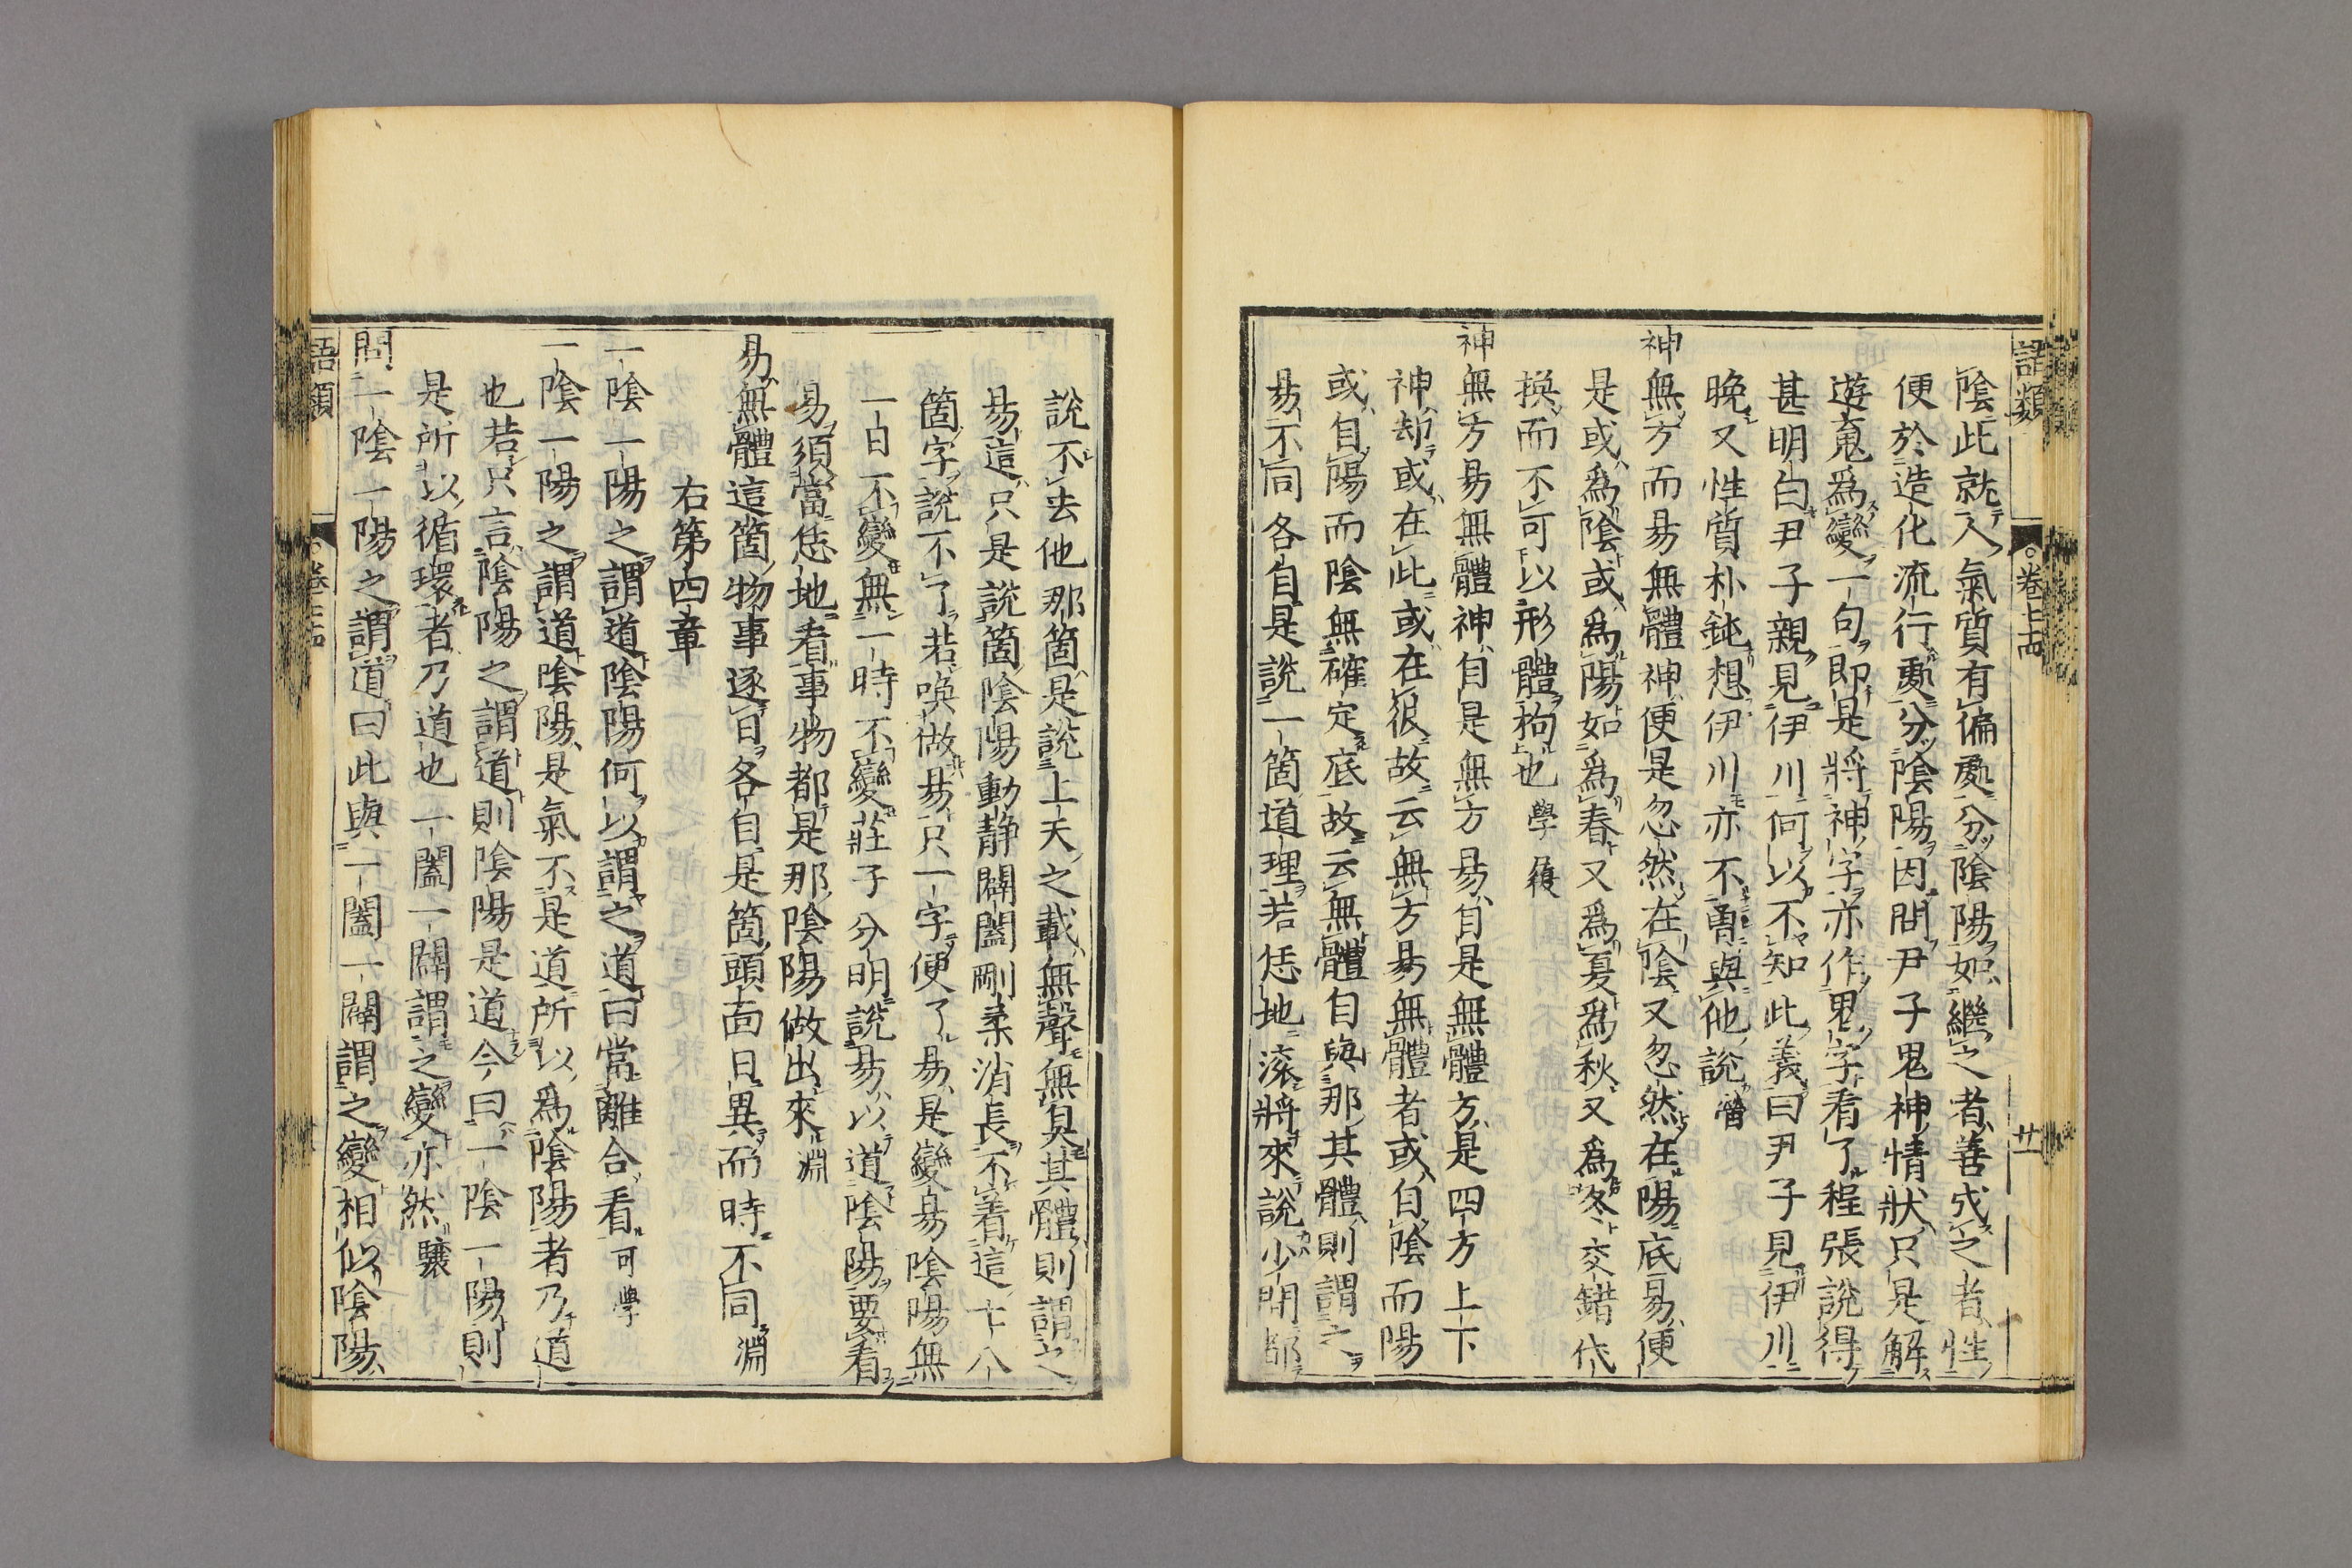 語類 卷七十四 廿一
陰此就人氣質有偏處分陰陽如繼之者善成之者性
便於造化流行處分陰陽因問尹子鬼神情狀只是解
遊䰟爲變一句即是將神字亦作鬼字看了程張説得
甚明白尹子親見伊川何以不知此義曰尹子見伊川
晚又性質朴鈍想伊川亦不曾與他説 㽦
神無方而易無體神便是忽然在陰又忽然在陽底易便
是或爲陰或爲陽如爲春又爲夏爲秋又爲冬交錯代
換而不可以形體拘也 學履
神無方易無體神自是無方易自是無體方是四方上下
神却或在此或在彼故云無方易無體者或自陰而陽
或自陽而陰無確定底故云無體自與那其體則謂之
易不同各自是説一箇道理若恁地滚將來説少間都
説不去他那箇是説上天之載無聲無臭其體則謂之
易這只是説箇陰陽動静闢闔剛柔消長不着這七八
箇字説不了若喚做易只一字便了易是變易陰陽無
一日不變無一時不變莊子分明説易以道陰陽要看
易須當恁地看事物都是那陰陽做出來 淵
易無體這箇物事逐日各自是箇頭面日異而時不同 淵
右第四章
一陰一陽之謂道陰陽何以謂之道曰當離合看 可學
一陰一陽之謂道陰陽是氣不是道所以爲陰陽者乃道
也若只言陰陽之謂道則陰陽是道今曰一陰一陽則
是所以循環者乃道也一闔一闢謂之變亦然 驤
問一陰一陽之謂道曰此與一闔一闢謂之變相似陰陽
語類